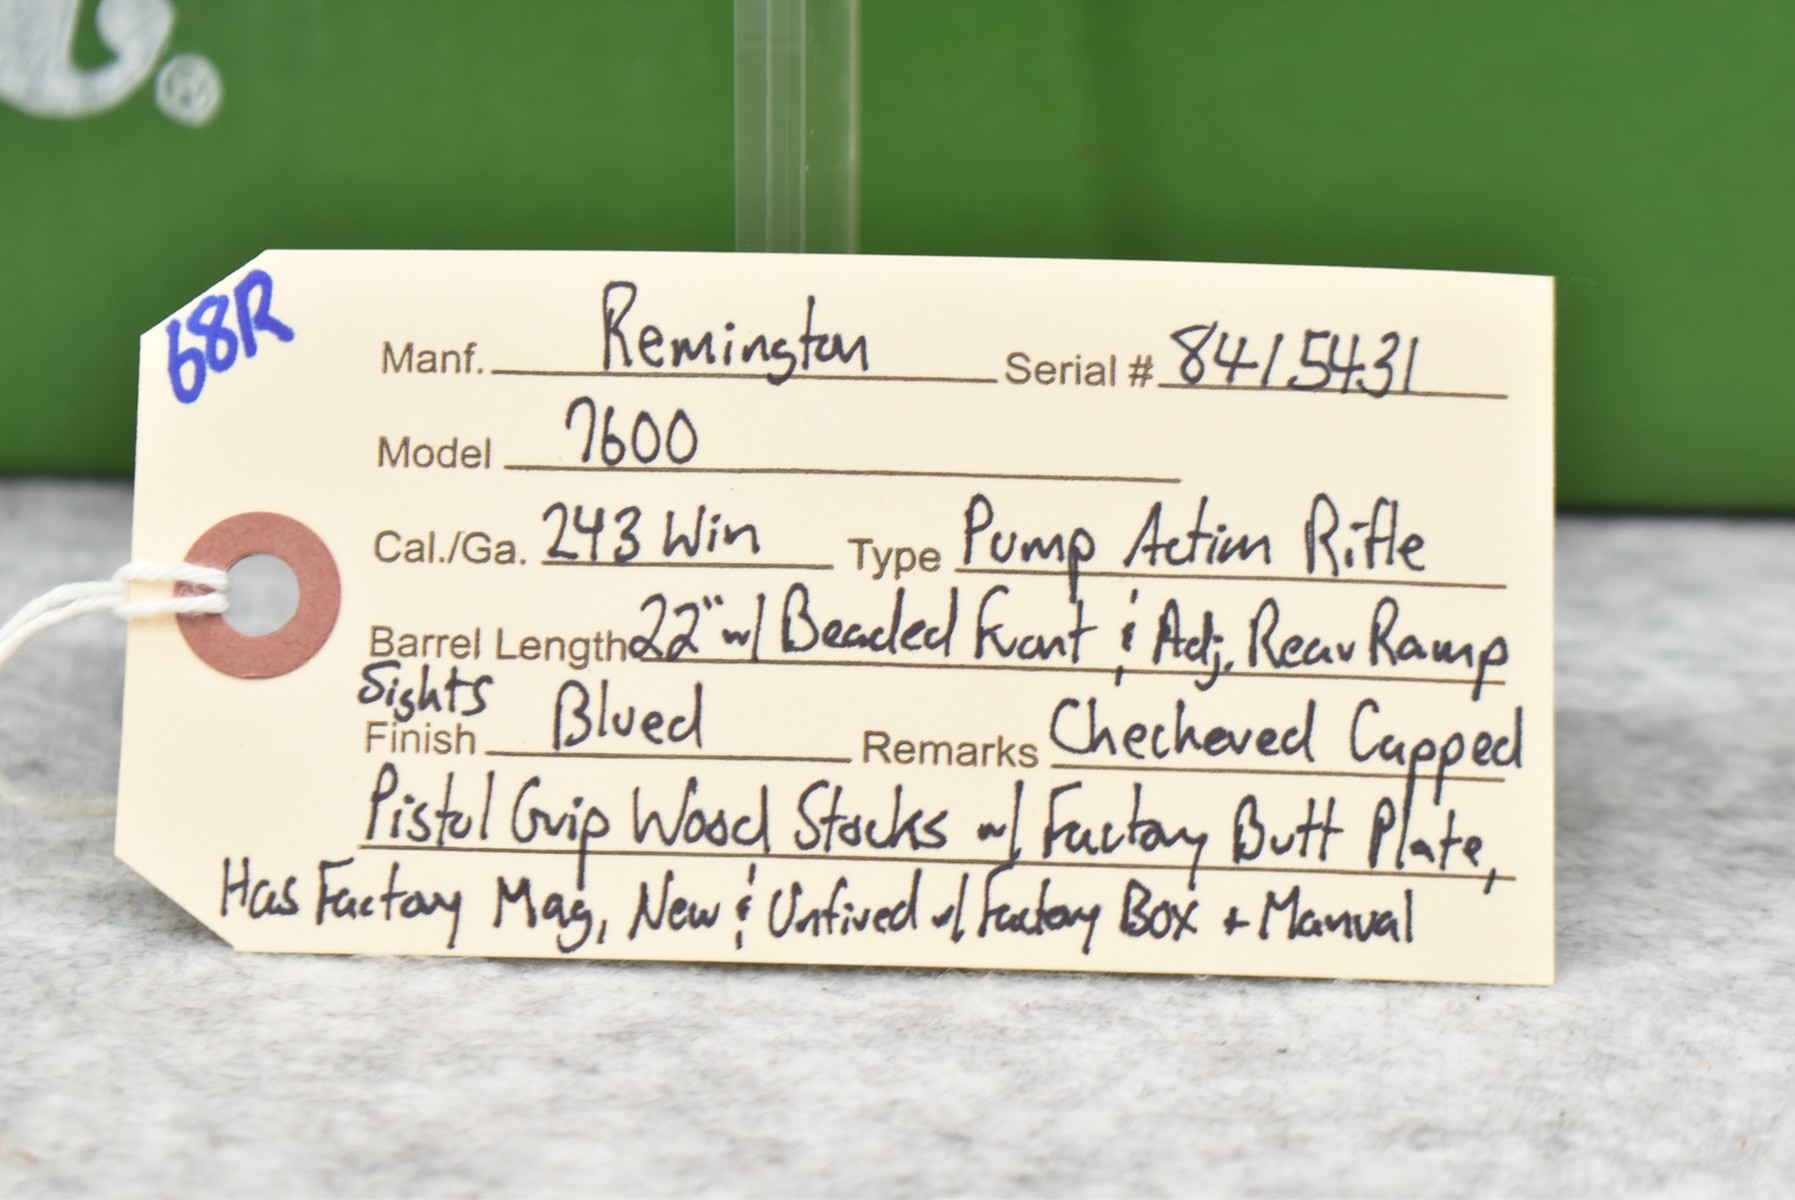 ®
68R
Manf. Remington Serial # 8415431
Model 7600
Cal./Ga. 243 Win Type Pump Action Rifle
Barrel Length 22" w/ Beaded Front & Adj. Rear Ramp
Sights
Finish Blued Remarks Checkered Capped
Pistol Grip Wood Stocks w/ Factory Butt Plate,
Has Factory Mag, New & Unfired w/ Factory Box + Manual